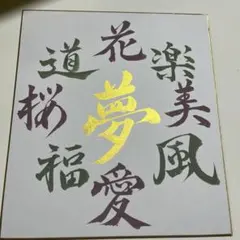 花
楽
美
風
愛
福
桜
道
夢